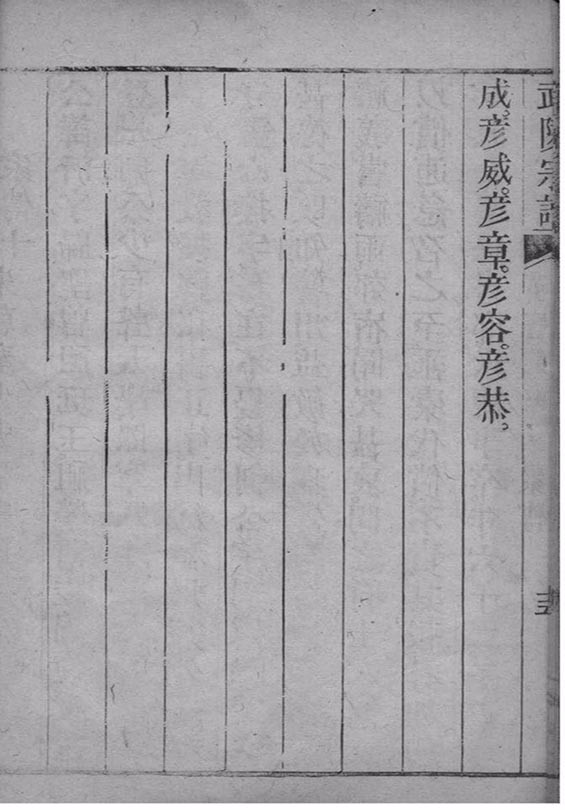 武陵宗譜
成。彥威。彥章。彥容。彥恭。